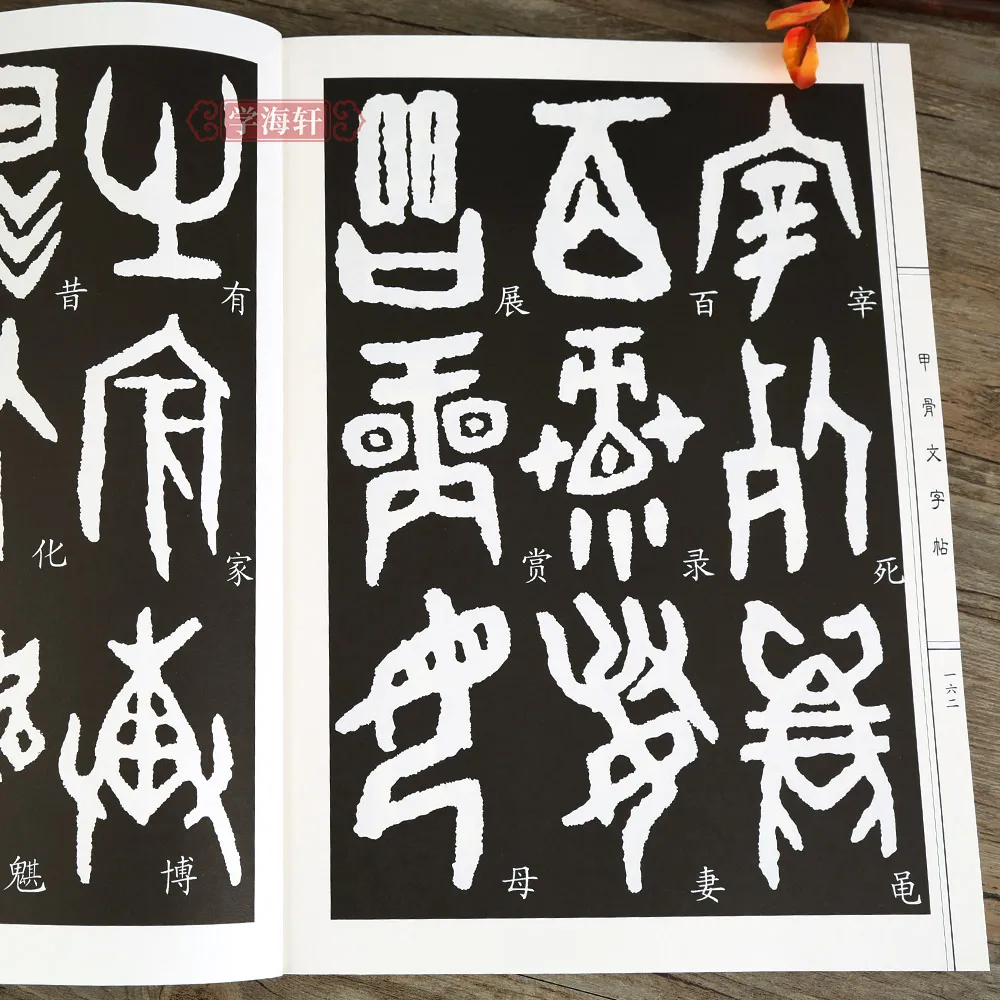 学海轩
甲骨文字帖
一六二
宰
死
黾
百
录
妻
展
赏
母
有
家
博
昔
化
魌